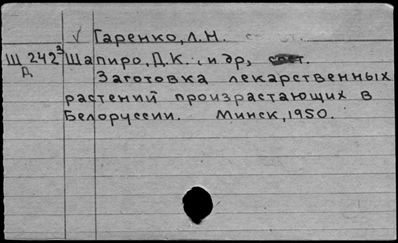 √ Гаренко, Л.Н.
Щ 242³ Шапиро, Д.К., и др, сост.
Д Заготовка лекарственных
растений произрастающих в
Белоруссии. Минск, 1950.